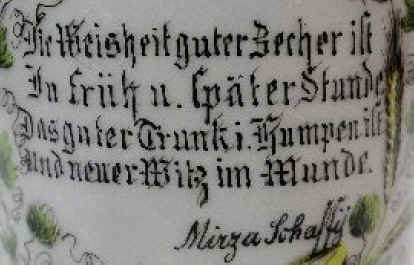 Die Weisheit guter Zecher ist
In früh u. später Stunde
Das guter Trunk i. Humpen ist
Und neuer Witz im Munde.
Mirza Schaffÿ